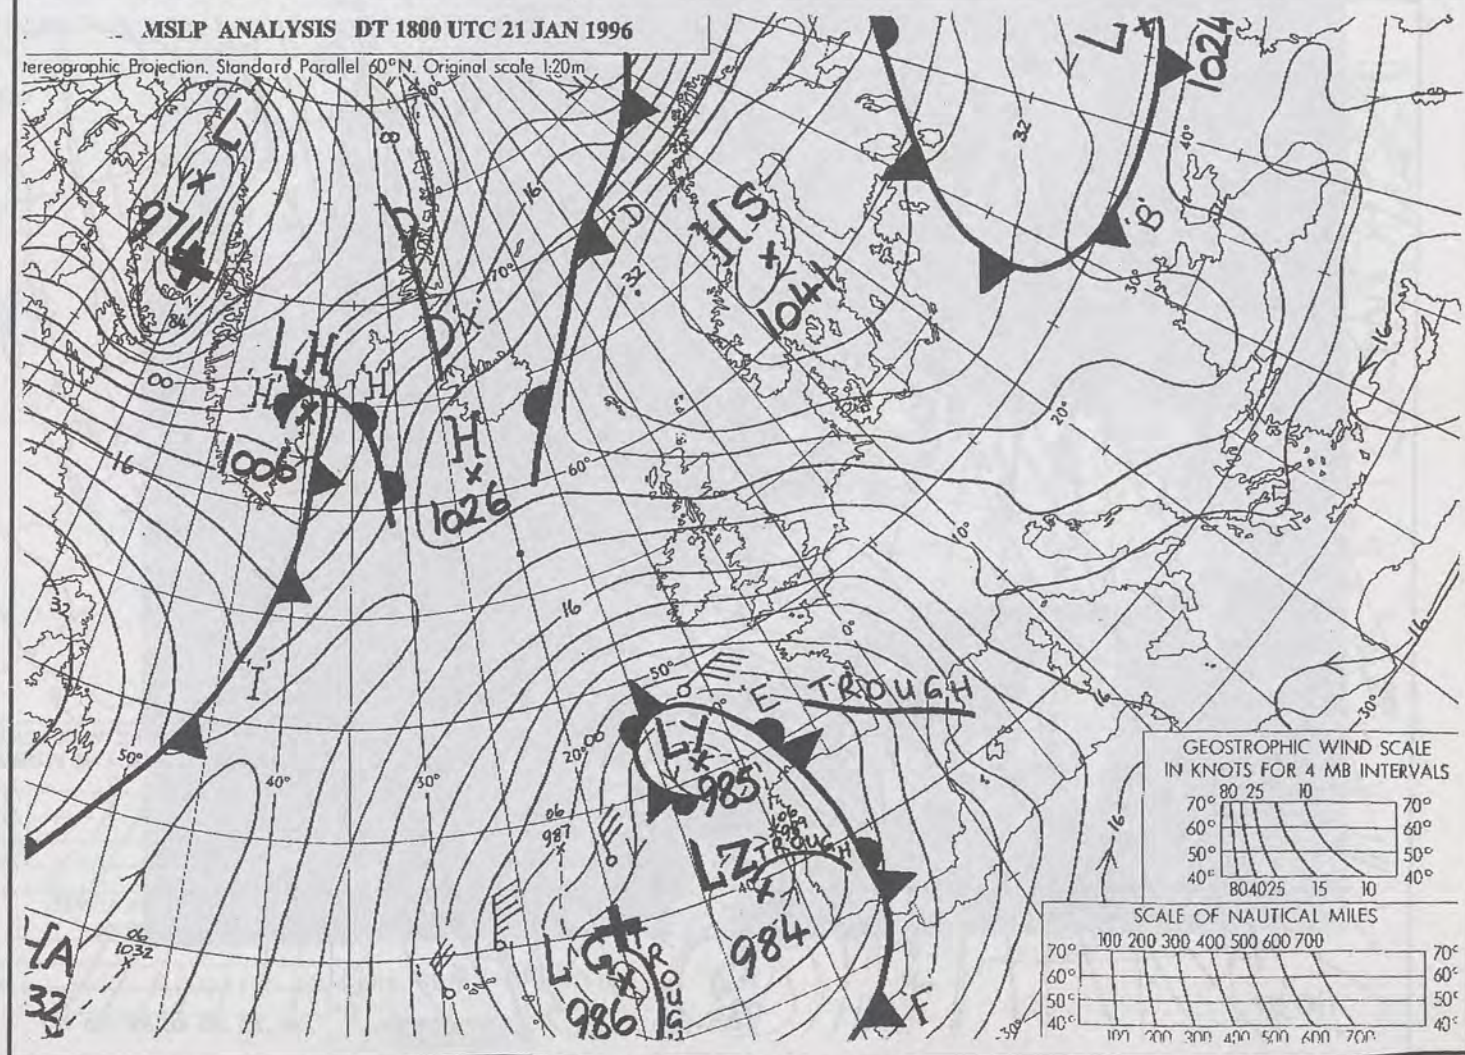 MSLP ANALYSIS DT 1800 UTC 21 JAN 1996
tereographic Projection. Standard Parallel 60°N. Original scale 1:20m
L
974
60°N
84
00
80°
16
'D'
32
HS
1041
L
1024
32
40°
'B'
30°
16
LH
'H'
'H'
1006
00
16
'X'
70°
H
1026
60°
20°
10°
0°
16
32
'T'
50°
40°
30°
20°
00
50°
'E' TROUGH
LY
985
0°
06
987
06
989
TROUGH
LZ
40
984
LG
986
TROUG
'F'
30°
HA
32
06
1032
16
16
16
30°
GEOSTROPHIC WIND SCALE
IN KNOTS FOR 4 MB INTERVALS
80 25 10
70° 70°
60° 60°
50° 50°
40° 40°
80 40 25 15 10
SCALE OF NAUTICAL MILES
100 200 300 400 500 600 700
70° 70°
60° 60°
50° 50°
40° 40°
100 200 300 400 500 600 700